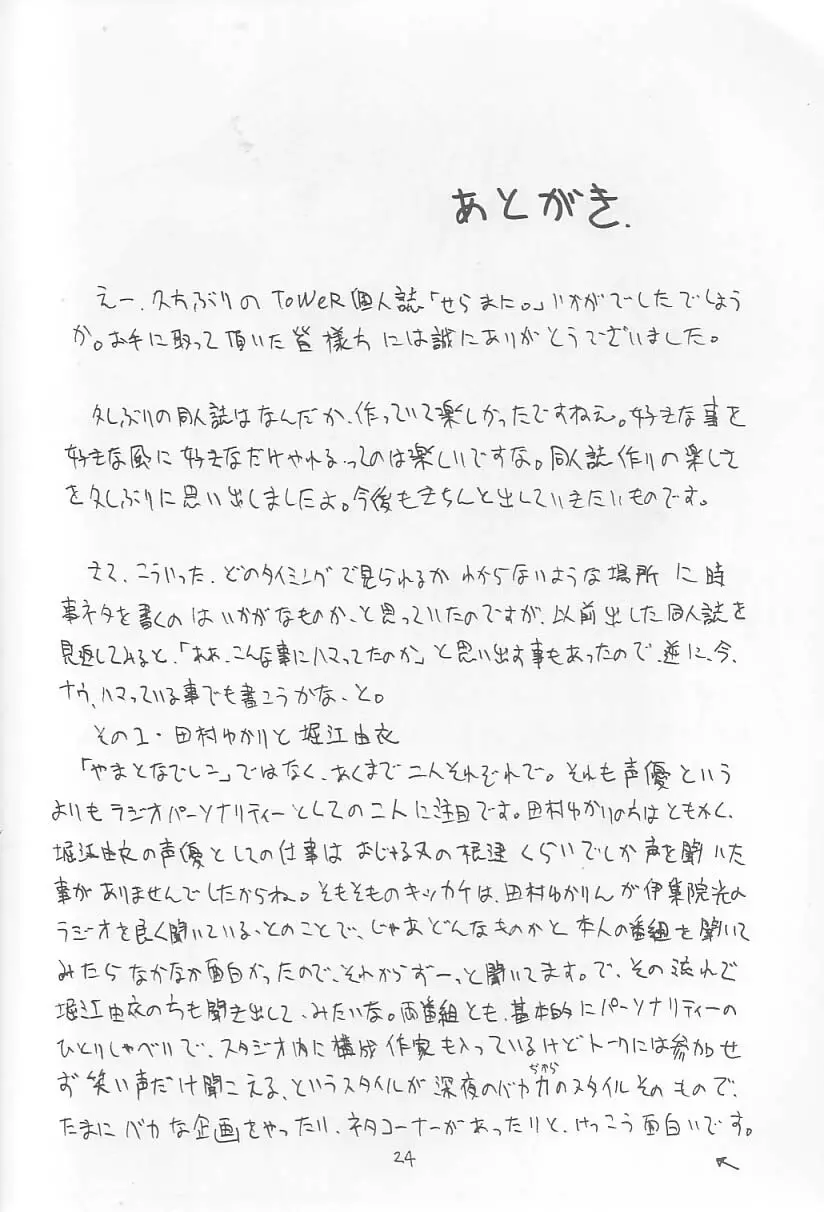 あとがき.
えー、久方ぶりのToWeR個人誌「せらまに。」いかがでしたでしょう
か。お手に取って頂いた皆様方には誠にありがとうございました。
久しぶりの同人誌はなんだか、作っていて楽しかったですねえ。好きな事を
好きな風に好きなだけやれる、ってのは楽しいですな。同人誌作りの楽しさ
を久しぶりに思い出しましたよ。今後もきちんと出していきたいものです。
さて、こういった、どのタイミングで見られるかわからないような場所に時
事ネタを書くのはいかがなものか、と思っていたのですが、以前出した同人誌を
見返してみると、「ああ、こんな事にハマってたのか」と思い出す事もあったので、逆に、今、
ナウ、ハマっている事でも書こうかな、と。
その1・田村ゆかりと堀江由衣
「やまとなでしこ」ではなく、あくまで二人それぞれで。それも声優という
よりもラジオパーソナリティーとしての二人に注目です。田村ゆかりの方はともかく、
堀江由衣の声優としての仕事はおじゃる丸の くらいでしか声を聞いた
事がありませんでしたからね。そもそものキッカケは、田村ゆかりんが伊集院光の
ラジオを良く聞いている、とのことで、じゃあどんなものかと本人の番組を聞いて
みたらなかなか面白かったので、それからずーっと聞いてます。で、その流れで
堀江由衣の方も聞き出して、みたいな。両番組とも、基本的にパーソナリティーの
ひとりしゃべりで、スタジオ内に構成作家も入っているけどトークには参加せ
ず笑い声だけ聞こえる、というスタイルが深夜のバカ力(ぢから)のスタイルそのもので、
たまにバカな企画をやったり、ネタコーナーがあったりと、けっこう面白いです。
24
↖